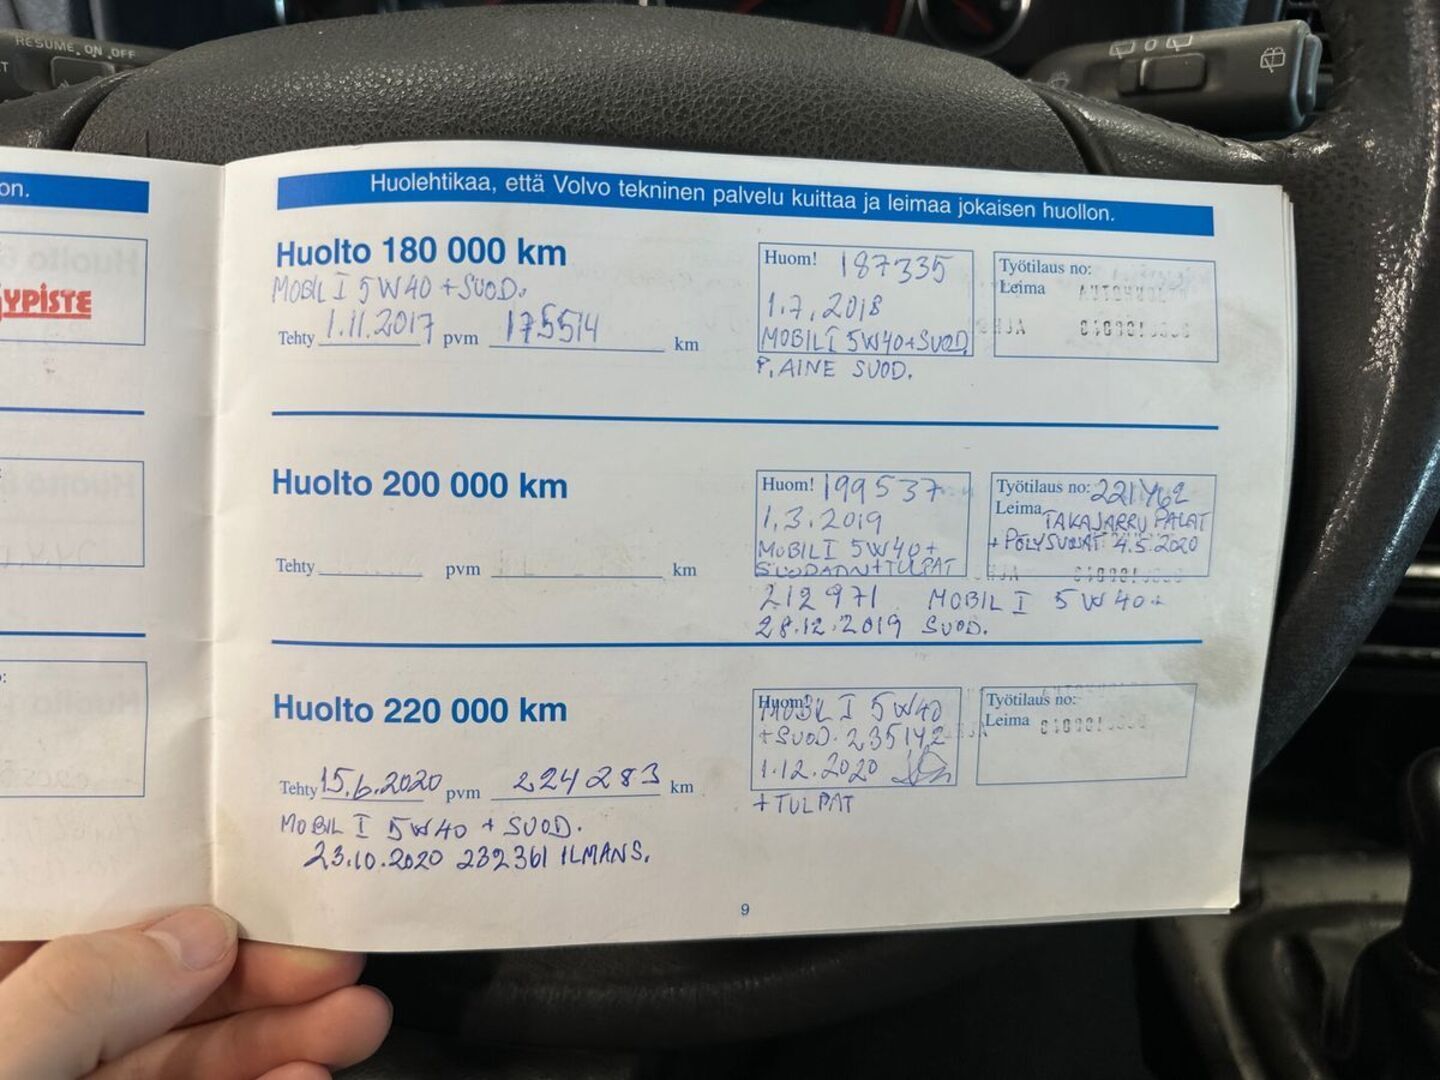 RESUME ON OFF
on.
YPISTE
Huolehtikaa, että Volvo tekninen palvelu kuittaa ja leimaa jokaisen huollon.
Huolto 180 000 km
MOBIL I 5W40 + SUOD.
Tehty 1.11.2017 pvm 175514 km
Huom! 187335
1.7.2018
MOBIL I 5W40+SUOD.
P. AINE SUOD.
Työtilaus no:
Leima
Huolto 200 000 km
Tehty pvm km
Huom! 199537
1.3.2019
MOBIL I 5W40+
SUODATIN+TULPAT
212971 MOBIL I 5W40+
28.12.2019 SUOD.
Työtilaus no: 221462
Leima TAKAJARRU PALAT
+ PÖLYSUOJAT 4.5.2020
Huolto 220 000 km
Tehty 15.6.2020 pvm 224283 km
MOBIL I 5W40 + SUOD.
23.10.2020 232361 ILMANS.
Huom! MOBIL I 5W40
+SUOD. 235142
1.12.2020
+ TULPAT
Työtilaus no:
Leima
9